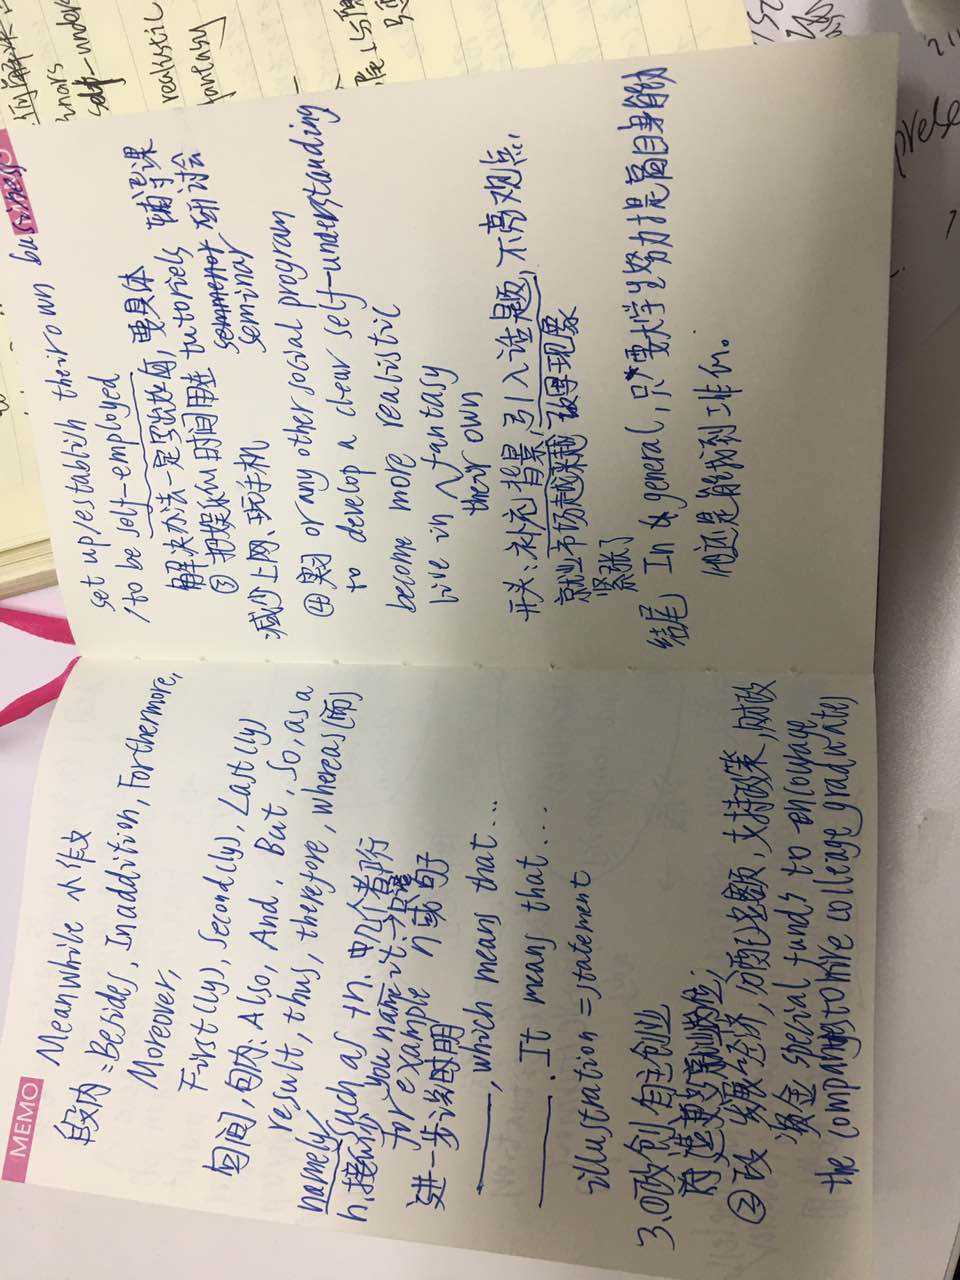 MEMO
Meanwhile 小作文
段内:Beside, In addition, Forthermore,
Moreover,
First(ly), Second(ly), Last(ly)
句间,句内:Also, And, But, So, as a
result, thus, therefore, whereas(而)
namely, such as +n. 中个者那行
n.接 you name it.
for example n或句子
进一步说明
——, which means that...
——. It means that...
illustration = statement
3.①政创自主创业
府造更多就业岗位;
②政 发展经济,分配名额,支持政策,财政
资金 special funds to encouyage
the companys to hire colleage graduate)
set up/establish their own business
/to be self-employed
解决办法一定写出效有,要具体
③把娱乐的时间用进 tutoriels 辅导课
seminar 研讨会
减少上网、玩手机
④ or any other social program
to develop a clear self-understanding
become more realistic
live in ∧ fantasy
their own
开头:补充背景,引入话题,不亮观点,
就业市场越来越 故事现象
紧张了
结尾 In general,只要大学生努力提高自身能力
他还是能找到工作的。
self-under
realistic
fantasy
prese